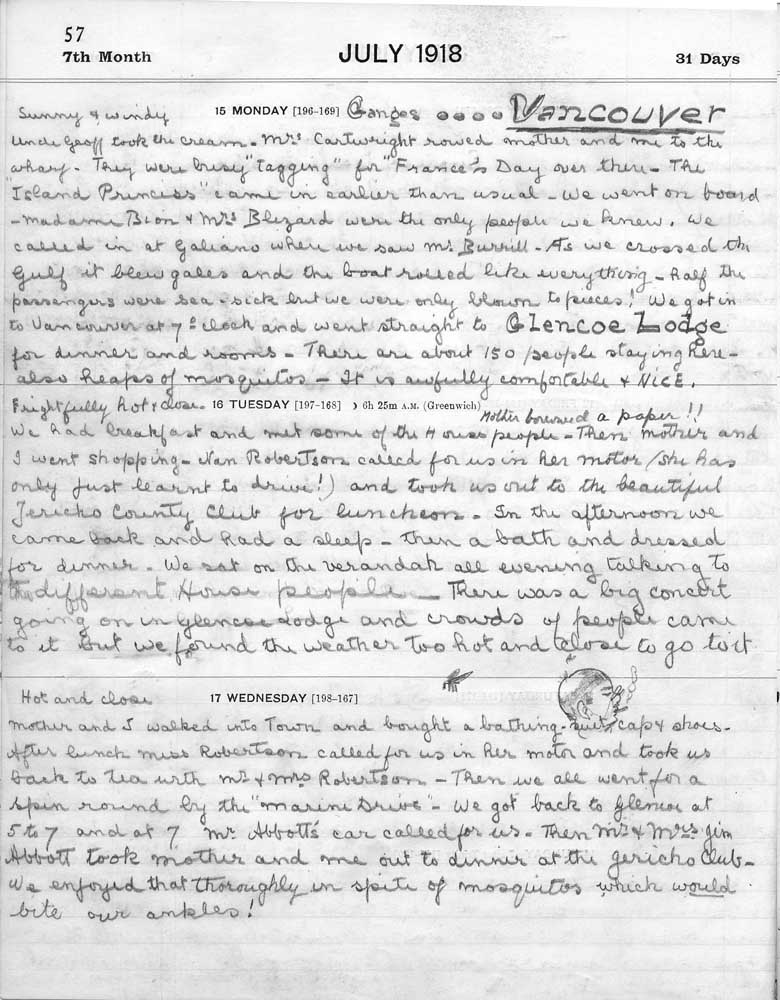 57
7th Month JULY 1918 31 Days
Sunny & windy 15 MONDAY [196-169] Ganges Vancouver
Uncle Geoff took the cream - Mrs Cartwright rowed mother and me to the
wharf - They were busy "tagging" for "France's Day over there - The
"Island Princess" came in earlier than usual - We went on board
- Madame Bion & Mrs Blizard were the only people we knew. We
called in at Galiano where we saw Mr Burrill - As we crossed the
Gulf it blew gales and the boat rolled like everything - Half the
passengers were sea-sick but we were only blown to pieces! We got in
to Vancouver at 7 o'clock and went straight to Glencoe Lodge
for dinner and rooms - There are about 150 people staying here -
also heaps of mosquitos - It is awfully comfortable & NICE.
Frightfully hot & close. 16 TUESDAY [197-168] ☽ 6h 25m A.M. (Greenwich) Mother borrowed a paper!!
We had breakfast and met some of the House people - Then mother and
I went shopping - Nan Robertson called for us in her motor (she has
only just learnt to drive!) and took us out to the beautiful
Jericho County Club for luncheon - In the afternoon we
came back and had a sleep - then a bath and dressed
for dinner - We sat on the verandah all evening talking to
the different House people - There was a big concert
going on in Glencoe Lodge and crowds of people came
to it but we found the weather too hot and close to go to it
Hot and close 17 WEDNESDAY [198-167]
Mother and I walked into Town and bought a bathing-suit, cap & shoes.
After lunch Miss Robertson called for us in her motor and took us
back to tea with Mr & Mrs Robertson - Then we all went for a
spin round by the "Marine Drive" - We got back to Glencoe at
5 to 7 and at 7 Mr Abbott's car called for us - Then Mr & Mrs Jim
Abbott took mother and me out to dinner at the Jericho Club -
We enjoyed that thoroughly in spite of mosquitos which would
bite our ankles!